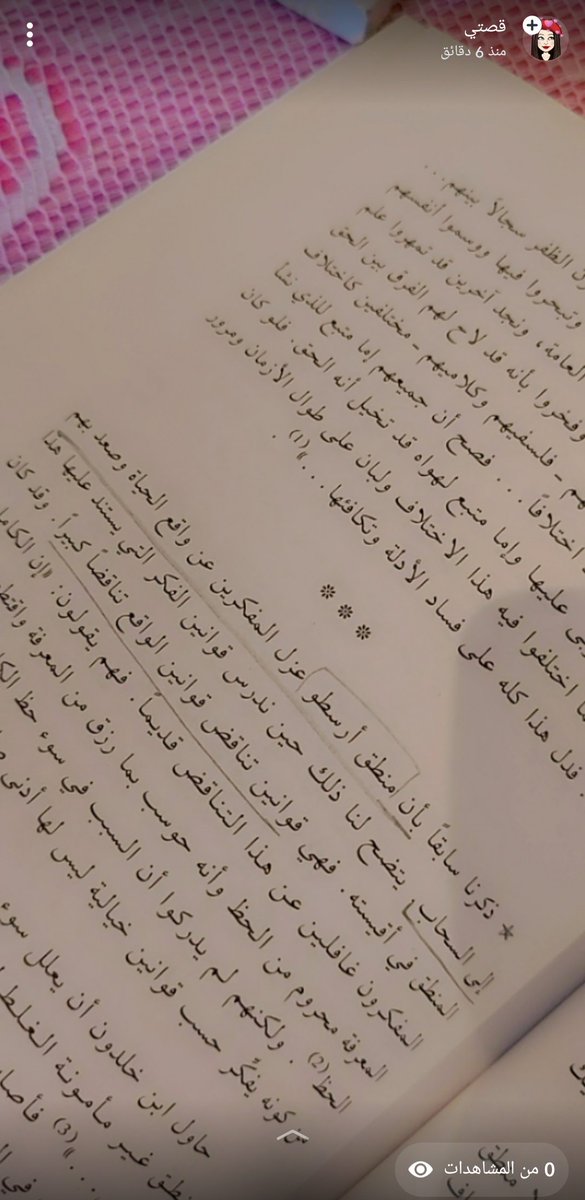 قصتي
منذ 6 دقائق
الظفر سجالاً بينهم...
وتبحروا فيها ووسموا أنفسهم
العامة، ونجد آخرين قد تمهروا علم
وفخروا بأنه قد لاح لهم الفرق بين الحق
فلسفيهم وكلاميهم - مختلفين كاختلاف
اختلافاً... فصح أن جميعهم إما متبع للذي نشأ
عليها وإما متبع لهواه قد تخيل أنه الحق. فلو كان
اختلفوا فيه هذا الاختلاف ولبان على طوال الأزمان ومرور
فدل هذا كله على فساد الأدلة وتكافئها...»(1).
* * *
* ذكرنا سابقاً بأن منطق أرسطو عزل المفكرين عن واقع الحياة وصعد بهم
إلى السحاب. يتضح لنا ذلك حين ندرس قوانين الفكر التي يستند عليها هذا
المنطق في أقيسته. فهي قوانين تناقض قوانين الواقع تناقضاً كبيراً. وقد كان
المفكرون غافلين عن هذا التناقض قديماً. فهم يقولون: «إن الكامل
المعرفة محروم من الحظ وأنه حوسب بما رزق من المعرفة
الحظ»(2). ولكنهم لم يدركوا أن السبب في سوء حظ
من كونه يفكر حسب قوانين خيالية ليس لها أدنى
حاول ابن خلدون أن يعلل سوء
غير مأمونة الغلط
...»(3)
في
0 من المشاهدات